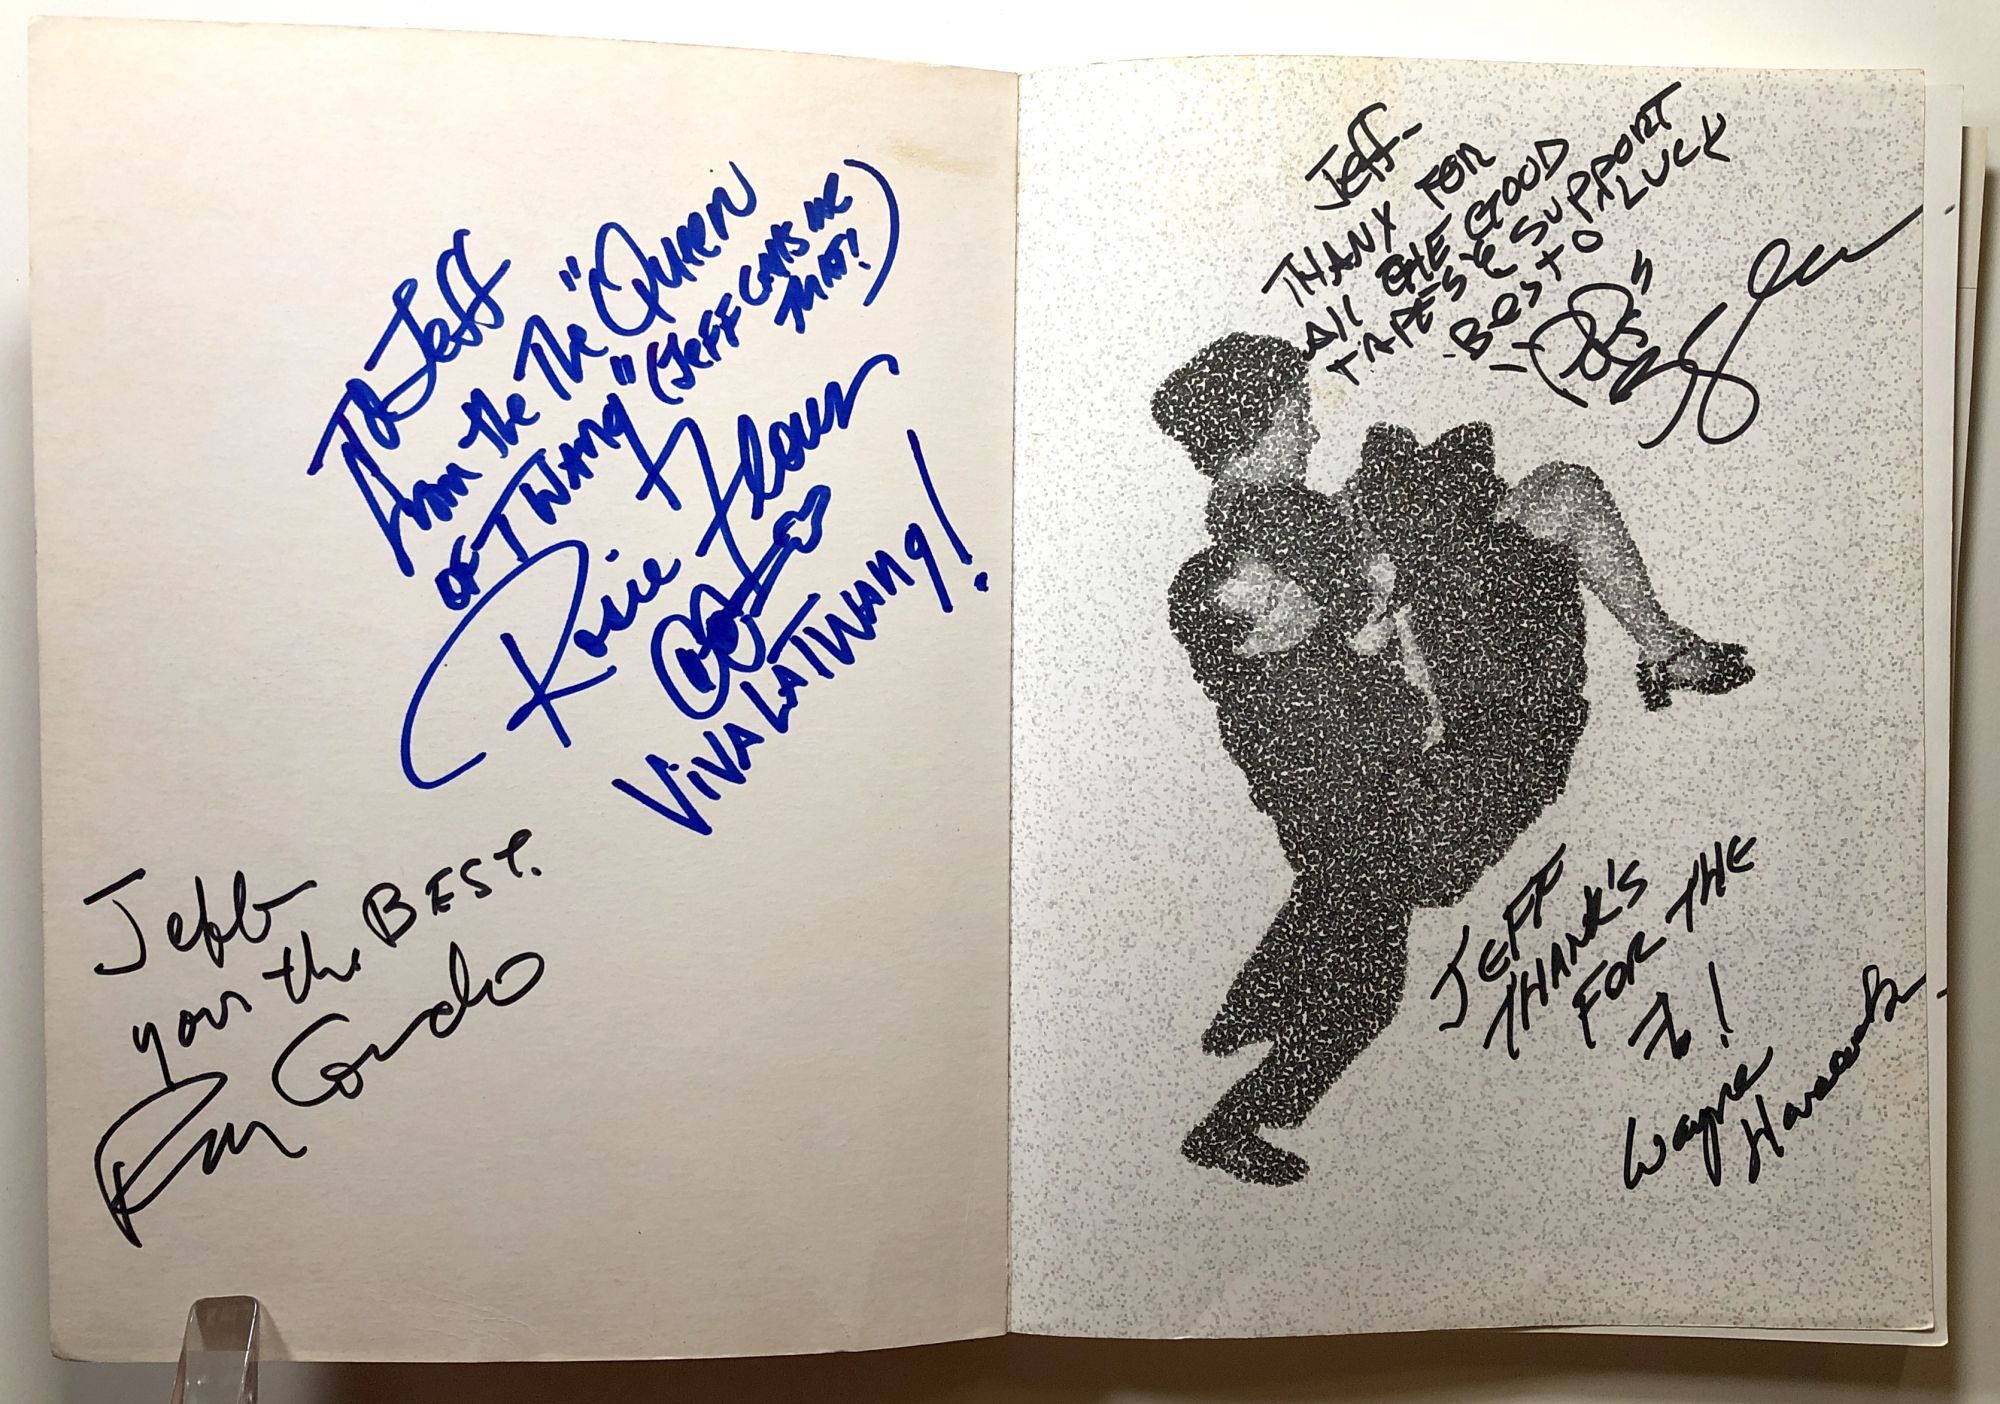 To Jeff
from the The "Queen
of Twang" (Jeff calls me
that!)
Rosie Flores
VIVA LA TWANG!
Jeff
your the BEST.
Ray Condo
Jeff-
THANX FOR
All THE GOOD
TAPES & SUPPORT
-BEST O LUCK
JEFF
THANK'S
FOR THE
Wayne